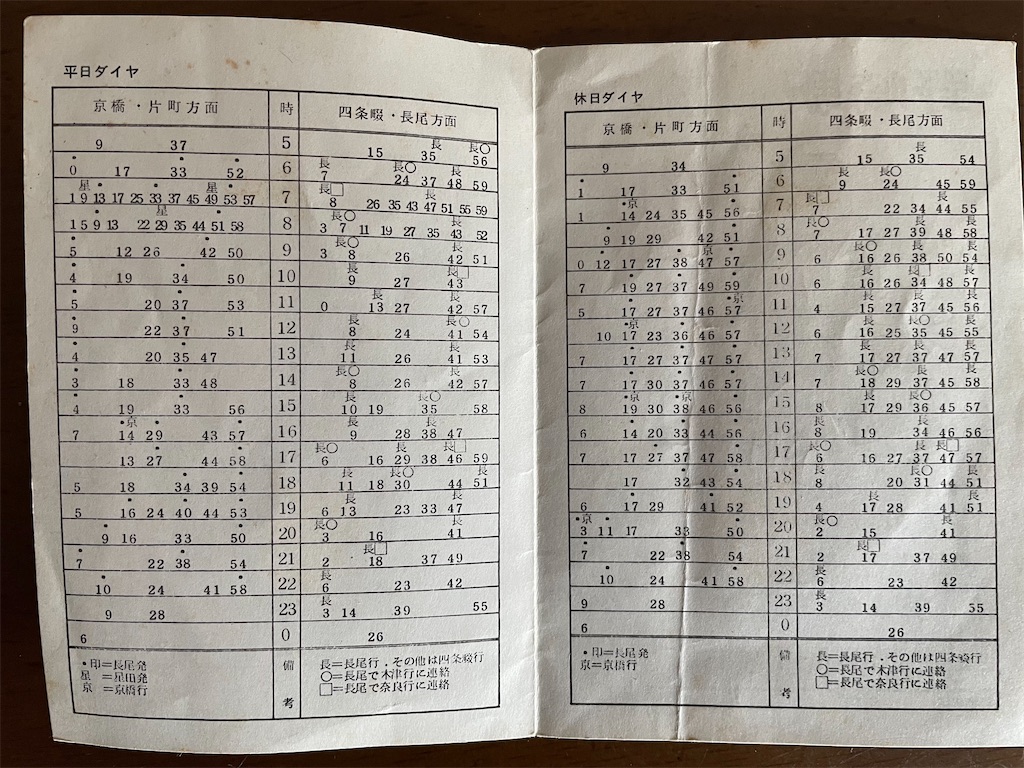 平日ダイヤ
京橋・片町方面 時 四条畷・長尾方面
長 長○
9 37 5 15 35 56
・ ・ ・ 長 長○ 長
0 17 33 52 6 7 24 37 48 59
星・ ・ 星・ 長□ 長
1 9 13 17 25 33 37 45 49 53 57 7 8 26 35 43 47 51 55 59
・ 星 ・ 長○ 長
1 5 9 13 22 29 35 44 51 58 8 3 7 11 19 27 35 43 52
・ ・ 長○ 長
5 12 26 42 50 9 3 8 26 42 51
・ ・ 長 長□
4 19 34 50 10 9 27 43
・ ・ 長 長
5 20 37 53 11 0 13 27 42 57
・ ・ 長 長○
9 22 37 51 12 8 24 41 54
・ ・ 長 長
4 20 35 47 13 11 26 41 53
・ ・ 長○ 長
3 18 33 48 14 8 26 42 57
・ ・ 長 長○
4 19 33 56 15 10 19 35 58
・京 ・ ・ 長 長
7 14 29 43 57 16 9 28 38 47
・ ・ 長○ 長 長□
13 27 44 58 17 6 16 29 38 46 59
・ ・ 長 長○ 長
5 18 34 39 54 18 11 18 30 44 51
・ ・ ・ 長
5 16 24 40 44 53 19 6 13 23 33 47
・ ・ 長○ 長
9 16 33 50 20 3 16 41
・ ・ 長□
7 22 38 54 21 2 18 37 49
・ ・ 長
10 24 41 58 22 6 23 42
長
9 28 23 3 14 39 55
6 0 26
・印=長尾発
星 =星田発
京 =京橋行
備考
長=長尾行．その他は四条畷行
○=長尾で木津行に連絡
□=長尾で奈良行に連絡
休日ダイヤ
京橋・片町方面 時 四条畷・長尾方面
長
9 34 5 15 35 54
・ ・ 長 長○
1 17 33 51 6 9 24 45 59
・京 ・ 長□ 長
1 14 24 35 45 56 7 7 22 34 44 55
・ ・ 長○ 長 長
9 19 29 42 51 8 7 17 27 39 48 58
・ ・ 京 ・ 長○ 長 長
0 12 17 27 38 47 57 9 6 16 26 38 50 54
・ ・ ・ 長 長□ 長
7 19 27 37 49 59 10 6 16 26 34 48 57
・ ・ ・京 長 長 長
5 17 27 37 46 57 11 4 15 27 37 45 56
・京 ・ ・ 長 長○ 長
10 17 23 36 46 57 12 6 16 25 35 45 55
・ ・ ・ 長 長 長
7 17 27 37 47 57 13 7 17 27 37 47 57
・ ・ ・ 長○ 長 長
7 17 30 37 46 57 14 7 18 29 37 45 58
・京 ・京 ・ 長 長○ 長
8 19 30 38 46 56 15 8 17 29 36 45 57
・ ・ ・ 長 長
6 14 20 33 44 56 16 8 19 34 46 56
・ ・ ・ 長○ 長 長□
7 17 27 37 47 58 17 6 16 27 37 47 57
・ ・ 長 長○ 長
17 32 43 54 18 8 20 31 44 51
・ ・ ・ 長 長
6 17 29 41 52 19 4 17 28 41 51
・京 ・ ・ ・ 長○ 長
3 11 17 33 50 20 2 15 41
・ ・ 長□
7 22 38 54 21 2 17 37 49
・ ・ 長
10 24 41 58 22 6 23 42
長
9 28 23 3 14 39 55
6 0 26
・印=長尾発
京=京橋行
備考
長=長尾行．その他は四条畷行
○=長尾で木津行に連絡
□=長尾で奈良行に連絡